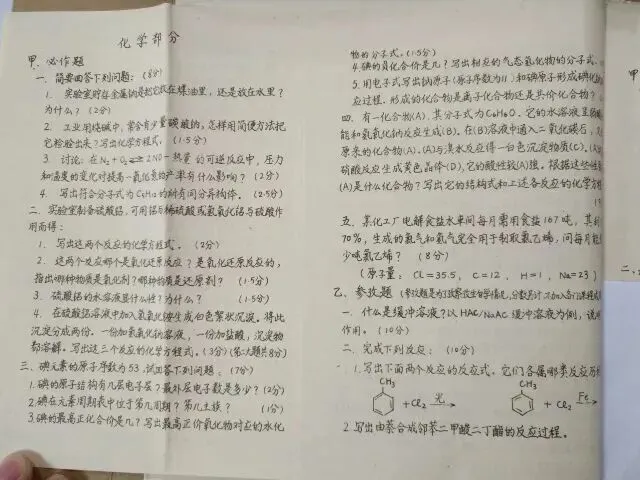 化学部分
甲、必作题
一、简要回答下列问题：(8分)
1. 实验室贮存金属钠是把它放在煤油里，还是放在水里？
为什么？(2分)
2. 工业用烧碱中，常含有少量碳酸钠，怎样用简便方法把
它检验出来？写出化学方程式。(1.5分)
3. 讨论：在N₂+O₂⇌2NO－热量 的可逆反应中，压力
和温度的变化对提高一氧化氮的产率有什么影响？(2分)
4. 写出符合分子式为C₅H₁₂的所有同分异构体。(2.5分)
二、实验室制备硫酸铝，可用铝与稀硫酸或氢氧化铝与硫酸作
用而得：
1. 写出这两个反应的化学方程式。(2分)
2. 这两个反应哪个是氧化还原反应？是氧化还原反应的，
指出哪种物质是氧化剂？哪种物质是还原剂？(1.5分)
3. 硫酸铝的水溶液显什么性？为什么？(1.5分)
4. 在硫酸铝溶液中加入氨水能生成白色絮状沉淀。将此
沉淀分成两份，一份加氢氧化钠溶液，一份加盐酸，沉淀物
都溶解。写出这三个反应的化学方程式。(3分)(第二大题共8分)
三、碘元素的原子序数为53，试回答下列问题：(7分)
1.碘的原子结构有几层电子层？最外层电子数是多少？(2分)
2.碘在元素周期表中位于第几周期？第几主族？(1分)
3.碘的最高正化合价是几？写出最高正价氧化物对应的水化
物的分子式。(1.5分)
4.碘的负化合价是几？写出相应的气态氢化物的分子式。
5.用电子式写出钠原子(原子序数为11)和碘原子形成碘化
应过程。形成的化合物是离子化合物还是共价化合物？
四、有一化合物(A)，其分子式为C₆H₆O，它的水溶液呈弱
能和氢氧化钠反应生成(B)。在(B)溶液中通入二氧化碳后，
原来的化合物(A)。(A)与溴水反应得一白色沉淀物质(C)。(A)
硝酸反应生成黄色晶体(D)，它的酸性较(A)强。根据这些性
(A)是什么化合物？写出它的结构式和上述各反应的化学方
五、某化工厂电解食盐水车间每月需用食盐167吨，其
70%，生成的氯气和氢气完全用于制取氯乙烯，问每月能
少吨氯乙烯？(8分)
(原子量：Cl=35.5，C=12，H=1，Na=23)
乙、参考题
一、什么是缓冲溶液？以HAC/NaAC缓冲溶液为例，说
作用。(10分)
二、完成下列反应：(10分)
1.写出下面两个反应的反应式，它们各属哪类反应历
CH₃ CH₃
+Cl₂ 光→ +Cl₂ Fe→
2.写出由萘合成邻苯二甲酸二丁酯的反应过程。
甲
二、